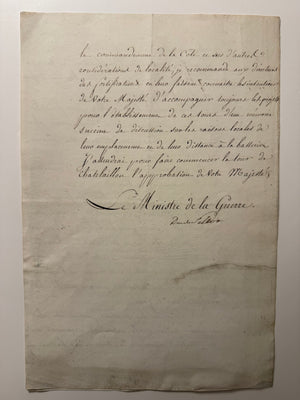 le commandement de la Côte ou sur d'autres
considérations de localité, je recommande aux directeurs
des fortifications en leur faisant connaitre les intentions
de Votre Majesté d'accompagner toujours les projets
pour l'établissement de ces tours d'un mémoire
succinct de discussion sur les raisons locales de
leur emplacement et de leur distance à la batterie.
J'attendrai pour faire commencer la tour de
Chatelaillon l'approbation de Votre Majesté.
Le Ministre de la Guerre.